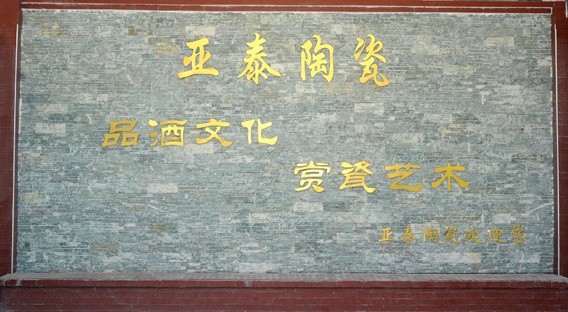 亚泰陶瓷
品酒文化
赏瓷艺术
亚泰陶瓷欢迎您